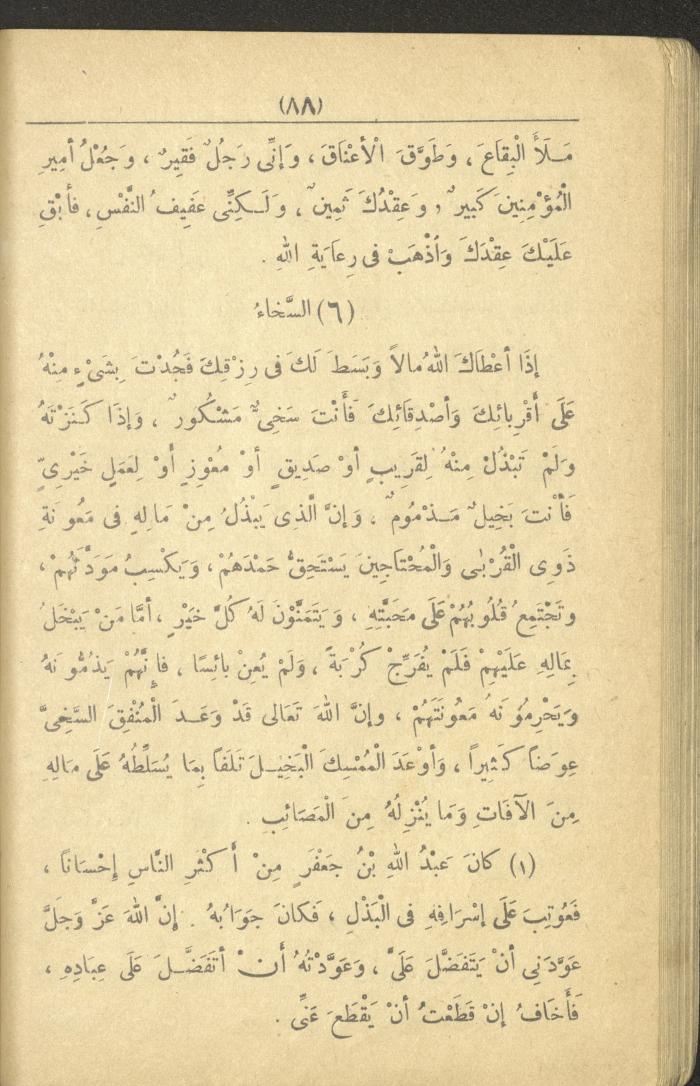 (٨٨)
مَلَأَ الْبِقَاعَ ، وَطَوَّقَ الْأَعْنَاقَ ، وَإِنِّى رَجُلٌ فَقِيرٌ ، وَجُعْلُ أَمِيرِ
الْمُؤْمِنِينَ كَبِيرٌ ، وَعِقْدُكَ ثَمِينٌ ، وَلَـكِنِّى عَفِيفُ النَّفْسِ ، فَأَبْقِ
عَلَيْكَ عِقْدَكَ وَاذْهَبْ فى رِعَايَةِ اللهِ .
(٦) السَّخَاءُ
إِذَا أَعْطَاكَ اللهُ مالاً وَبَسَطَ لَكَ فى رِزْقِكَ فَجُدْتَ بِشَىْءٍ مِنْهُ
عَلَى أَقْرِبائِكَ وَأَصْدِقَائِكَ فَأَنْتَ سَخِىٌّ مَشْكُورٌ ، وَإِذَا كَنَزْتَهُ
وَلَمْ تَبْذُلْ مِنْهُ لِقَرِيبٍ أَوْ صَدِيقٍ أَوْ مُعْوِزٍ أَوْ لِعَمَلٍ خَيْرِىٍّ
فَأَنْتَ بَخِيلٌ مَـذْمُومٌ ، وَإِنَّ الَّذِى يَبْذُلُ مِنْ مَالِهِ فى مَعُونَةِ
ذَوِى الْقُرْبٰى وَالْمُحْتَاجِينَ يَسْتَحِقُّ حَمْدَهُمْ ، وَيَكْسِبُ مَوَدَّتَهُمْ ،
وتَجْتَمِعُ قُلُوبُهُمْ عَلَى مَحَبَّتِهِ ، وَيَتَمَنَّوْنَ لَهُ كُلَّ خَيْرٍ ، أَمَّا مَنْ يَبْخَلُ
بِمَالِهِ عَلَيْهِمْ فَلَمْ يُفَرِّجْ كُرْبَةً ، وَلَمْ يُعِنْ بائِسًا ، فَإِنَّهُمْ يَذُمُّونَهُ
وَيَحْرِمُونَهُ مَعُونَتَهُمْ ، وإنَّ اللهَ تَعَالى قَدْ وَعَـدَ الْمُنْفِقَ السَّخِىَّ
عِوَضاً كَثِيراً ، وَأَوْعَدَ الْمُمْسِكَ الْبَخِيـلَ تَلَفاً بِمَا يُسَلِّطُهُ عَلَى مَالِهِ
مِنَ الآفَاتِ وَمَا يُنْزِلُهُ مِنَ الْمَصَائِبِ .
(١) كانَ عَبْدُ اللهِ بْنُ جَعْفَرٍ مِنْ أَكْثَرِ النَّاسِ إِحْسَانًا ،
فَعُوتِبَ عَلَى إِسْرَافِهِ فى الْبَذْلِ ، فَكانَ جَوَابُهُ . إِنَّ اللهَ عَزَّ وَجَلَّ
عَوَّدَنِي أَنْ يَتَفَضَّلَ عَلَىَّ ، وَعَوَّدْتُهُ أَنْ أَتَفَضَّـلَ عَلَى عِبَادِهِ ،
فَأَخَافُ إِنْ قَطَعْتُ أَنْ يَقْطَعَ عَنِّى .